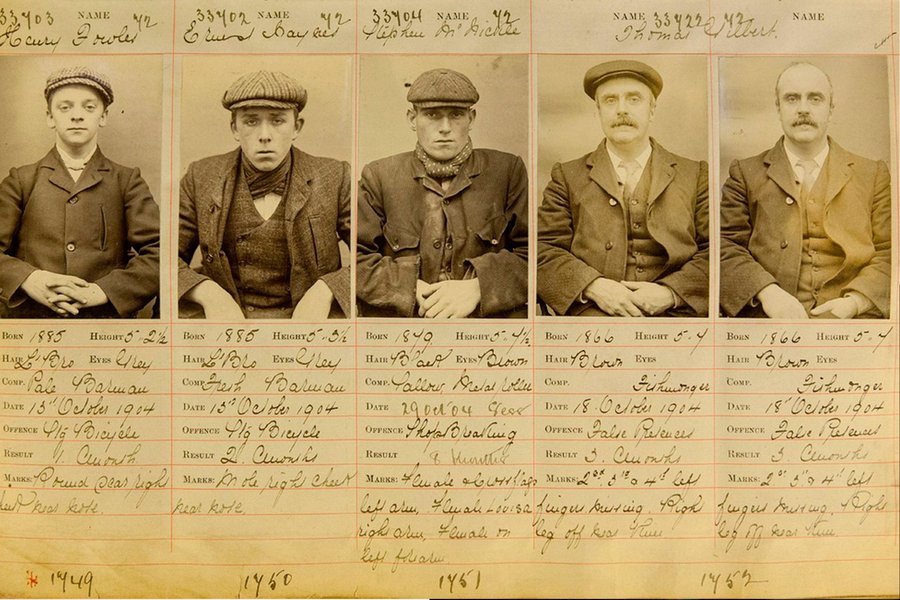 33703 NAME 72
Henry Fowler
33702 NAME 72
Ernest Haynes
33704 NAME 72
Stephen McNickle
NAME 33722 72 NAME
Thomas Gilbert.
BORN 1885 HEIGHT 5-2½
HAIR Lt Bro EYES Grey
COMP. Pale Barman
DATE 15th October 1904
OFFENCE Stg Bicycle
RESULT 1. month
MARKS: Round scar right
near nose.
1749
BORN 1885 HEIGHT 5-3½
HAIR Lt Bro EYES Grey
COMP. Fresh Barman
DATE 15th October 1904
OFFENCE Stg Bicycle
RESULT 2. months
MARKS: Mole right cheek
near nose
1750
BORN 1879 HEIGHT 5-4½
HAIR Black EYES Brown
COMP. Sallow
DATE 29 Oct 04 Sess
OFFENCE Shop Breaking
RESULT 8 months
MARKS: Female & Cross flags
left arm, Female Louisa
right arm, Female on
left forearm
1751
BORN 1866 HEIGHT 5-4
HAIR Brown EYES
COMP. Fishmonger
DATE 18. October 1904
OFFENCE False Pretences
RESULT 3. months
MARKS: 2nd 3rd & 4th left
fingers missing, Right
leg off near
1752
BORN 1866 HEIGHT 5-4
HAIR Brown EYES
COMP. Fishmonger
DATE 18th October 1904
OFFENCE False Pretences
RESULT 3. months
MARKS: 2nd 3rd & 4th left
fingers missing, Right
leg off near